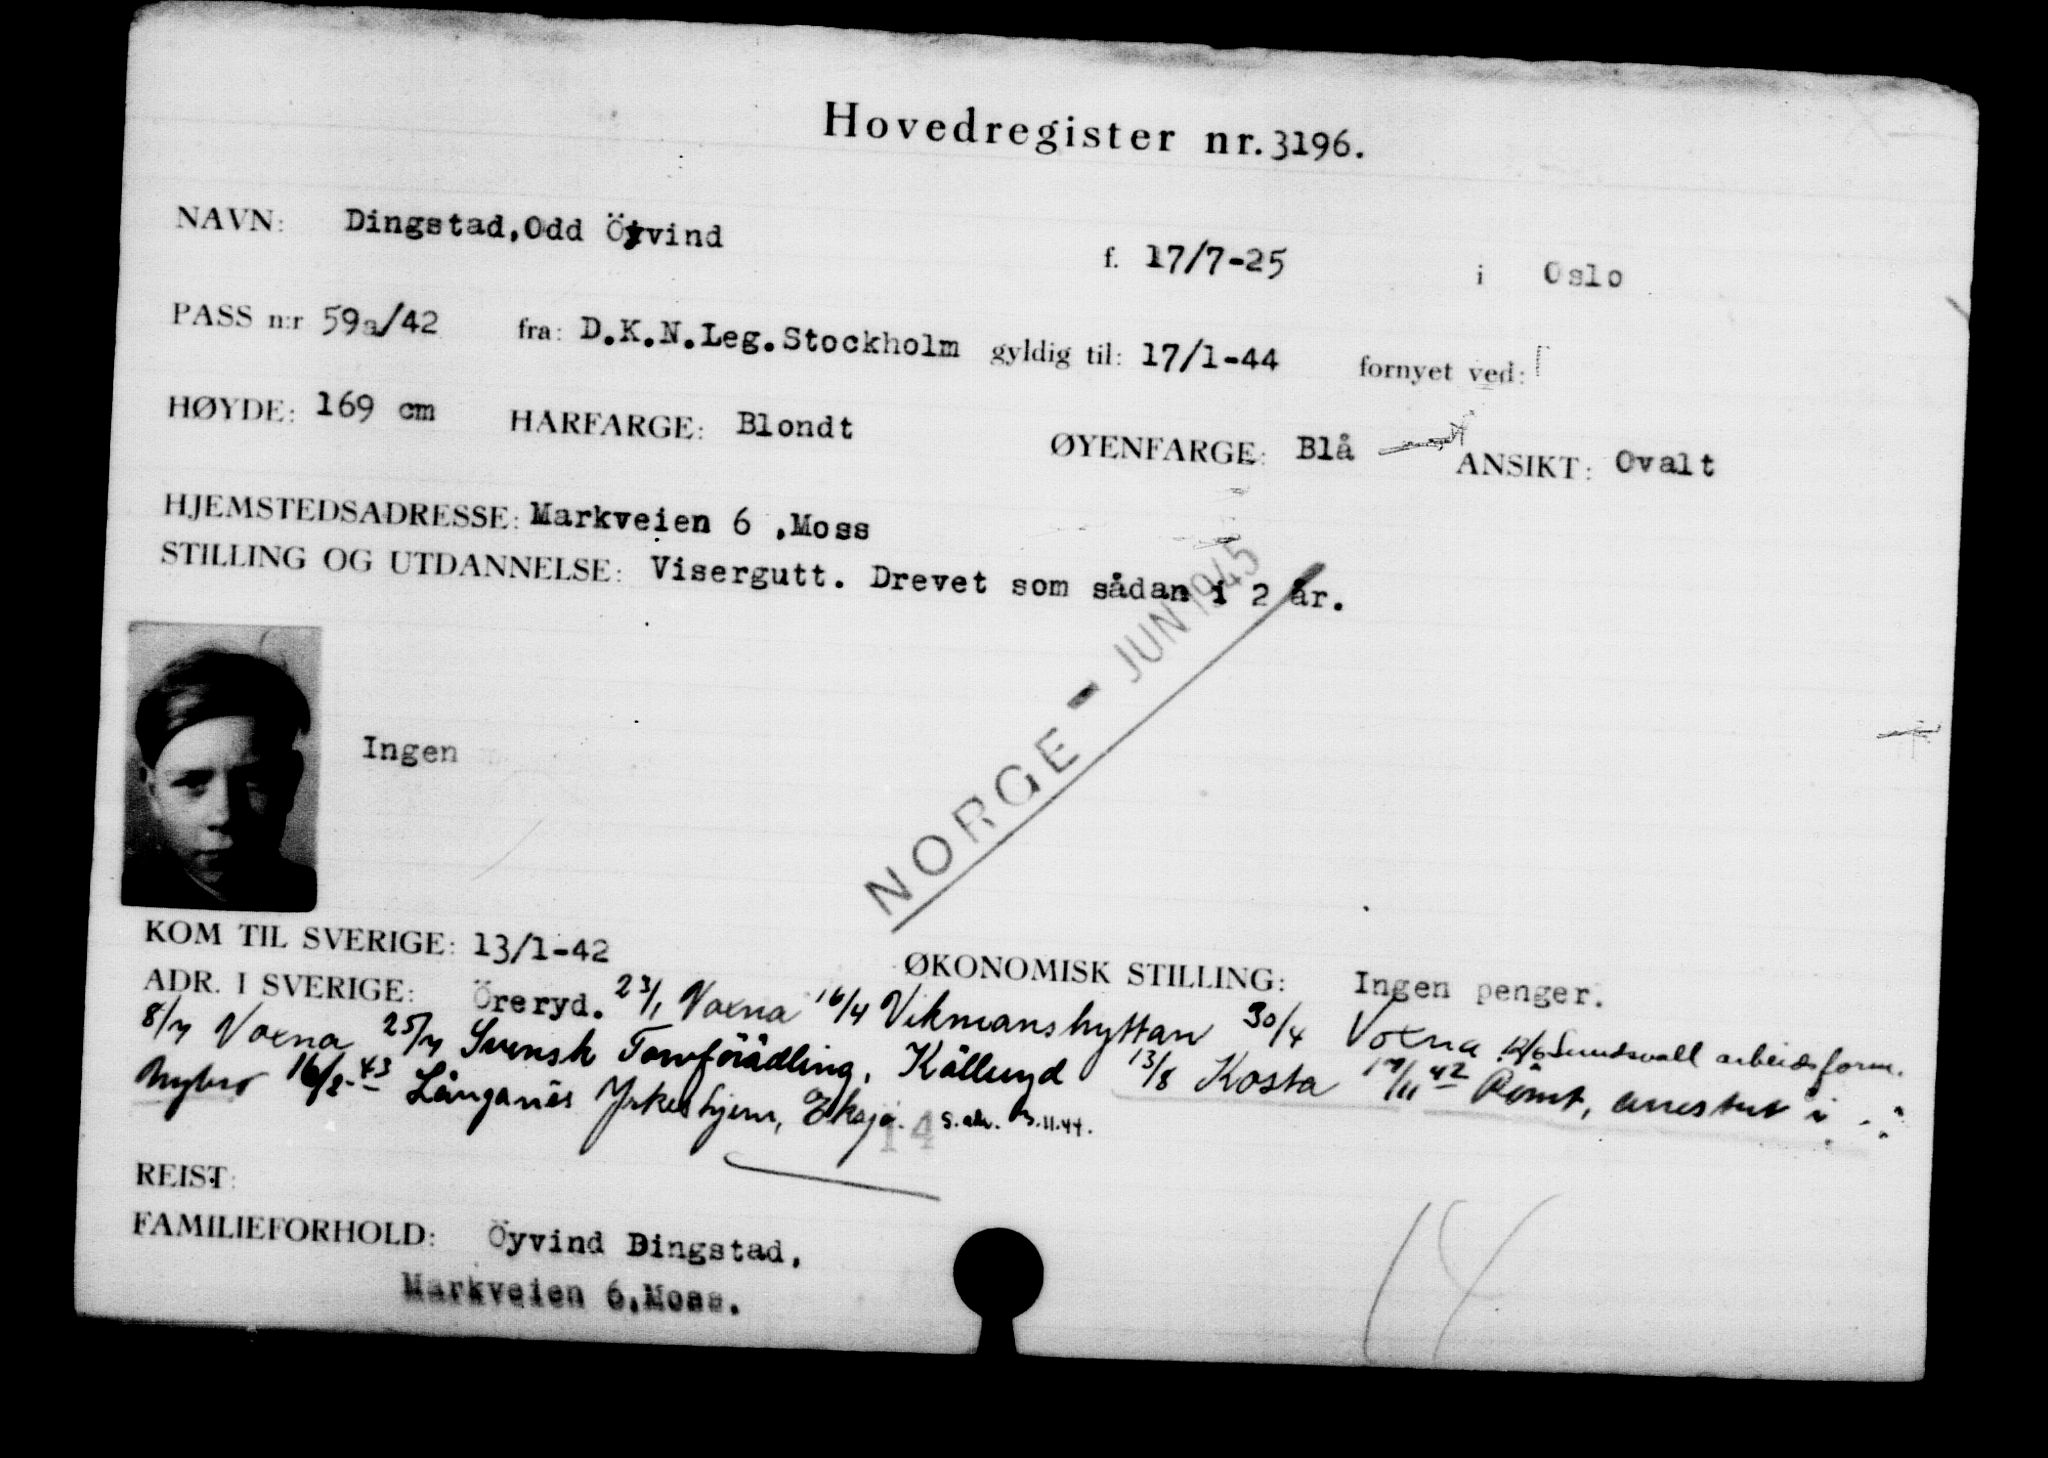 Hovedregister nr. 3196.
NAVN: Dingstad, Odd Öyvind f. 17/7-25 i Oslo
PASS n:r 59a/42 fra: D.K.N.Leg.Stockholm gyldig til: 17/1-44 fornyet ved:
HØYDE: 169 cm HÅRFARGE: Blondt ØYENFARGE: Blå ANSIKT: Ovalt
HJEMSTEDSADRESSE: Markveien 6 ,Moss
STILLING OG UTDANNELSE: Visergutt. Drevet som sådan i 2 år.
NORGE - JUN 1945
Ingen
KOM TIL SVERIGE: 13/1-42 ØKONOMISK STILLING: Ingen penger.
ADR. I SVERIGE: Öreryd. 23/1 Voxna 16/4 Vikmanshyttan 30/4 Voxna 12/6 Sundsvall arbeidsform.
8/7 Voxna 25/7 Svensk Torvförädling, Källunyd 13/8 Kosta 17/11 42 Römt, arrestert i
Nybro 16/2-43 Långanäs Yrkeshjem, Eksjö. 14 S. adr. 11.44.
REIST:
FAMILIEFORHOLD: Öyvind Dingstad,
Markveien 6, Moss.
14